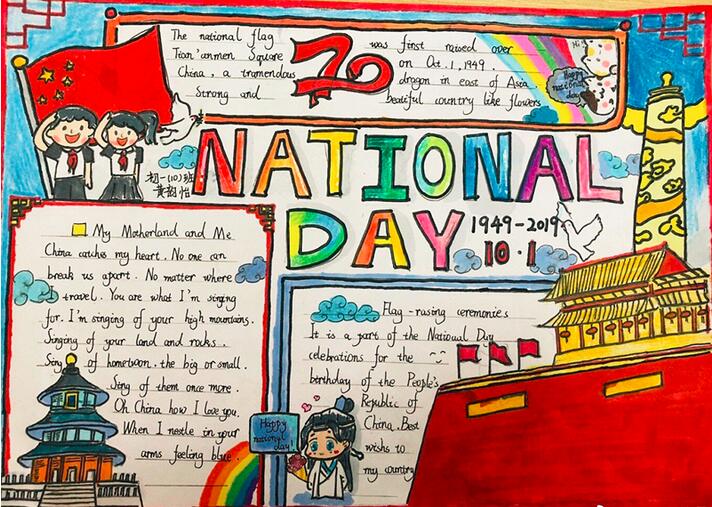 The national flag was first raised over
Tian'anmen Square on Oct.1,1949
China, a tramendous dragon in east of Asia.
Strong and beatiful country like flowers
70
Hi
Happy
national
day
NATIONAL
DAY
1949-2019
10·1
初一(10)班
My Motherland and Me
China catches my heart. No one can
break us apart. No matter where
I travel. You are what I'm singing
for. I'm singing of your high mountains.
Singing of your land and rocks.
Sing of hometown, the big or small.
Sing of them once more.
Oh China how I love you.
When I nestle in your
arms feeling blue.
Flag-rasing ceremonies
It is a part of the National Day
celebrations for the
birthday of the People's
Republic of
China. Best
wishes to
my country
Happy
national
day!